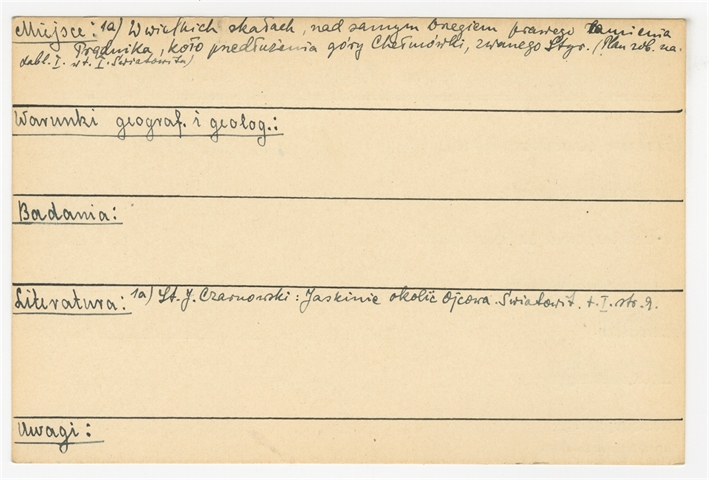 Miejsce: 1a) W wielkich skałach, nad samym brzegiem prawego ramienia
Prądnika, koło przedłużenia góry Chełmówki, zwanego Styr. (Plan zob. na.
tabl. I. w t. I. Światowita)
Warunki geograf. i geolog.:
Badania:
Literatura: 1a) St. J. Czarnowski: Jaskinie okolic Ojcowa. Światowit. t. I. str. 9.
Uwagi: